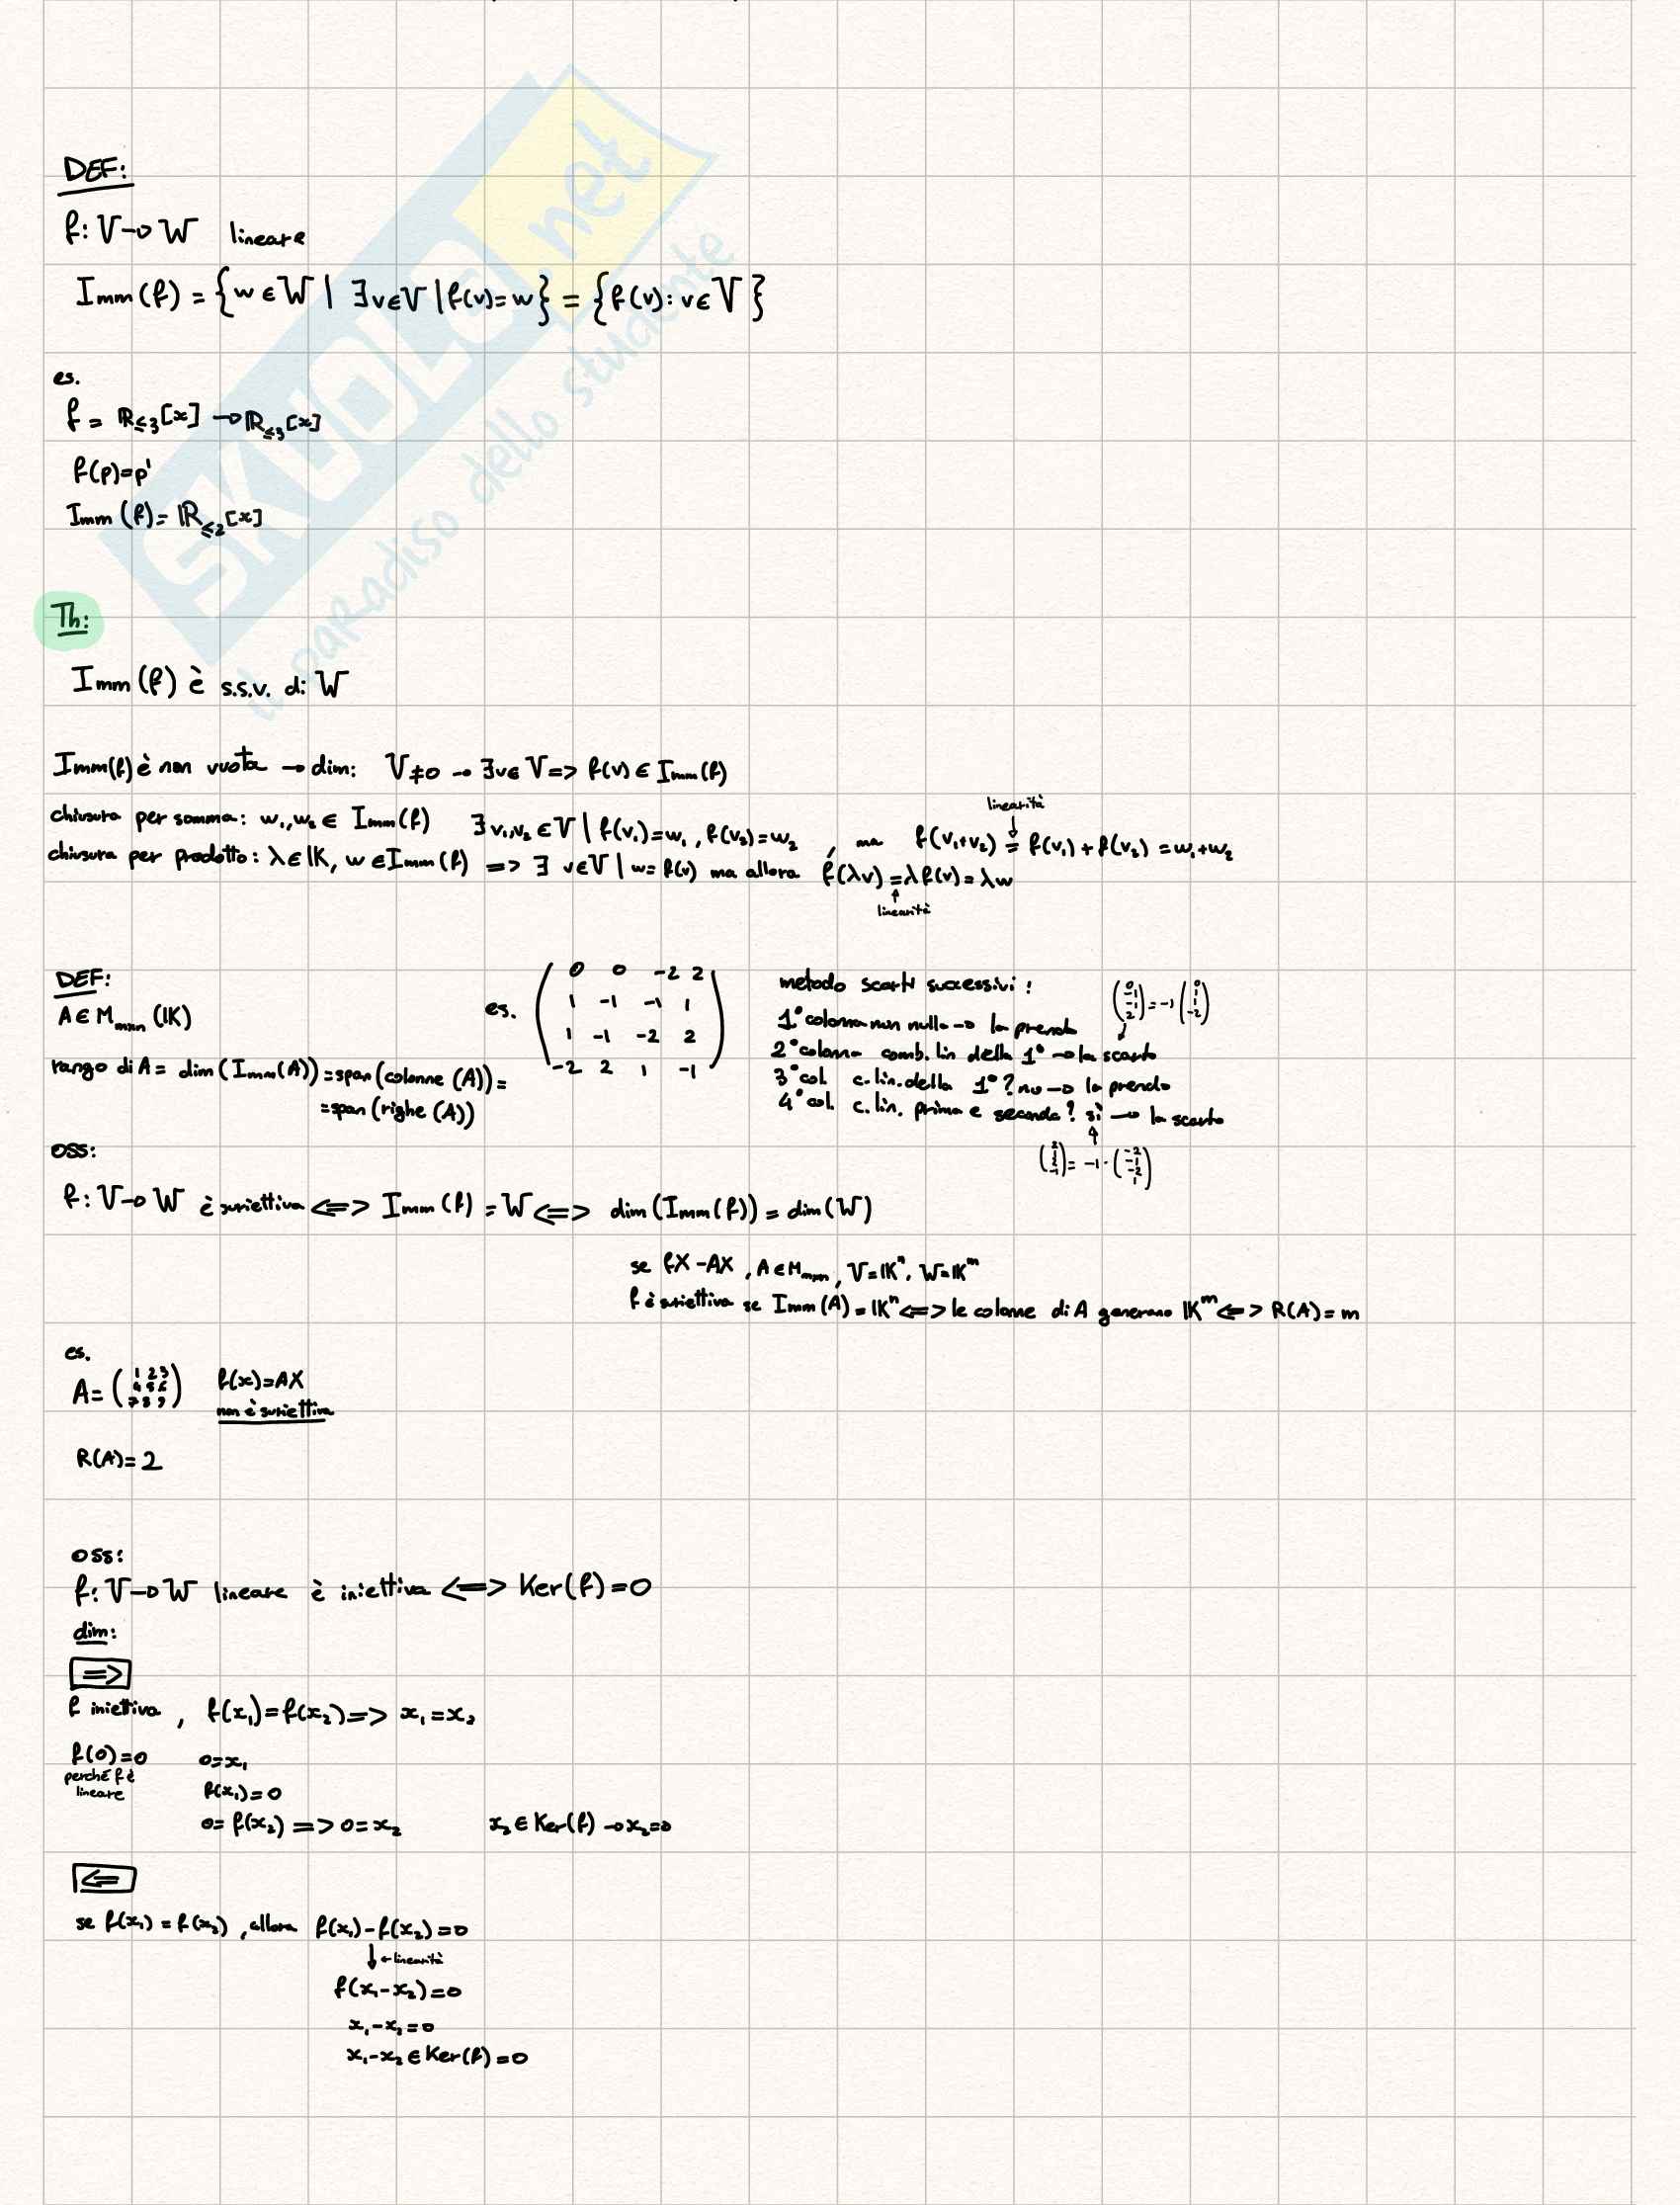 DEF:
f: V→W lineare
Imm(f) = {w∈W | ∃v∈V | f(v)=w} = {f(v): v∈V}
es.
f = ℝ≤3[x] → ℝ≤3[x]
f(p)=p'
Imm(f)= ℝ≤2[x]
Th:
Imm(f) è s.s.v. di W
Imm(f) è non vuota → dim: V≠0 → ∃v∈V => f(v)∈Imm(f)
linearità
↓
chiusura per somma: w₁,w₂∈ Imm(f) ∃v₁,v₂∈V | f(v₁)=w₁, f(v₂)=w₂ , ma f(v₁+v₂) = f(v₁)+f(v₂) = w₁+w₂
chiusura per prodotto: λ∈IK, w∈Imm(f) => ∃ v∈V | w=f(v) ma allora f(λv)=λf(v)=λw
↑
linearità
DEF:
A∈M_mxn(IK)
rango di A= dim(Imm(A))=span(colonne(A))=
=span(righe(A))
es.
0 0 -2 2
1 -1 -1 1
1 -1 -2 2
-2 2 1 -1
metodo scarti successivi:
1° colonna non nulla → la prendo
2° colonna comb. lin della 1° → la scarto
3° col. c. lin. della 1°? no → la prendo
4° col. c. lin. prima e seconda? sì → la scarto
(0 -1 -1 2) = -1 (0 1 1 -2)
(2 1 2 -1) = -1·(-2 -1 -2 1)
OSS:
f: V→W è suriettiva <=> Imm(f)=W <=> dim(Imm(f))=dim(W)
se fX-AX, A∈M_mxn, V=IKⁿ, W=IKᵐ
f è suriettiva se Imm(A)=IKⁿ <=> le colonne di A generano IKᵐ <=> R(A)=m
es.
A= (1 2 3
4 5 6
7 8 9)
f(x)=AX
non è suriettiva
R(A)=2
OSS:
f: V→W lineare è iniettiva <=> Ker(f)=0
dim:
=>
f iniettiva, f(x₁)=f(x₂)=> x₁=x₂
f(0)=0 0=x₁
perché f è
lineare
f(x₁)=0
0=f(x₂) => 0=x₂ x₂∈Ker(f) → x₂=0
<=
se f(x₁)=f(x₂), allora f(x₁)-f(x₂)=0
↓ ← linearità
f(x₁-x₂)=0
x₁-x₂=0
x₁-x₂∈Ker(f)=0
SKUOLA.net
il paradiso dello studente